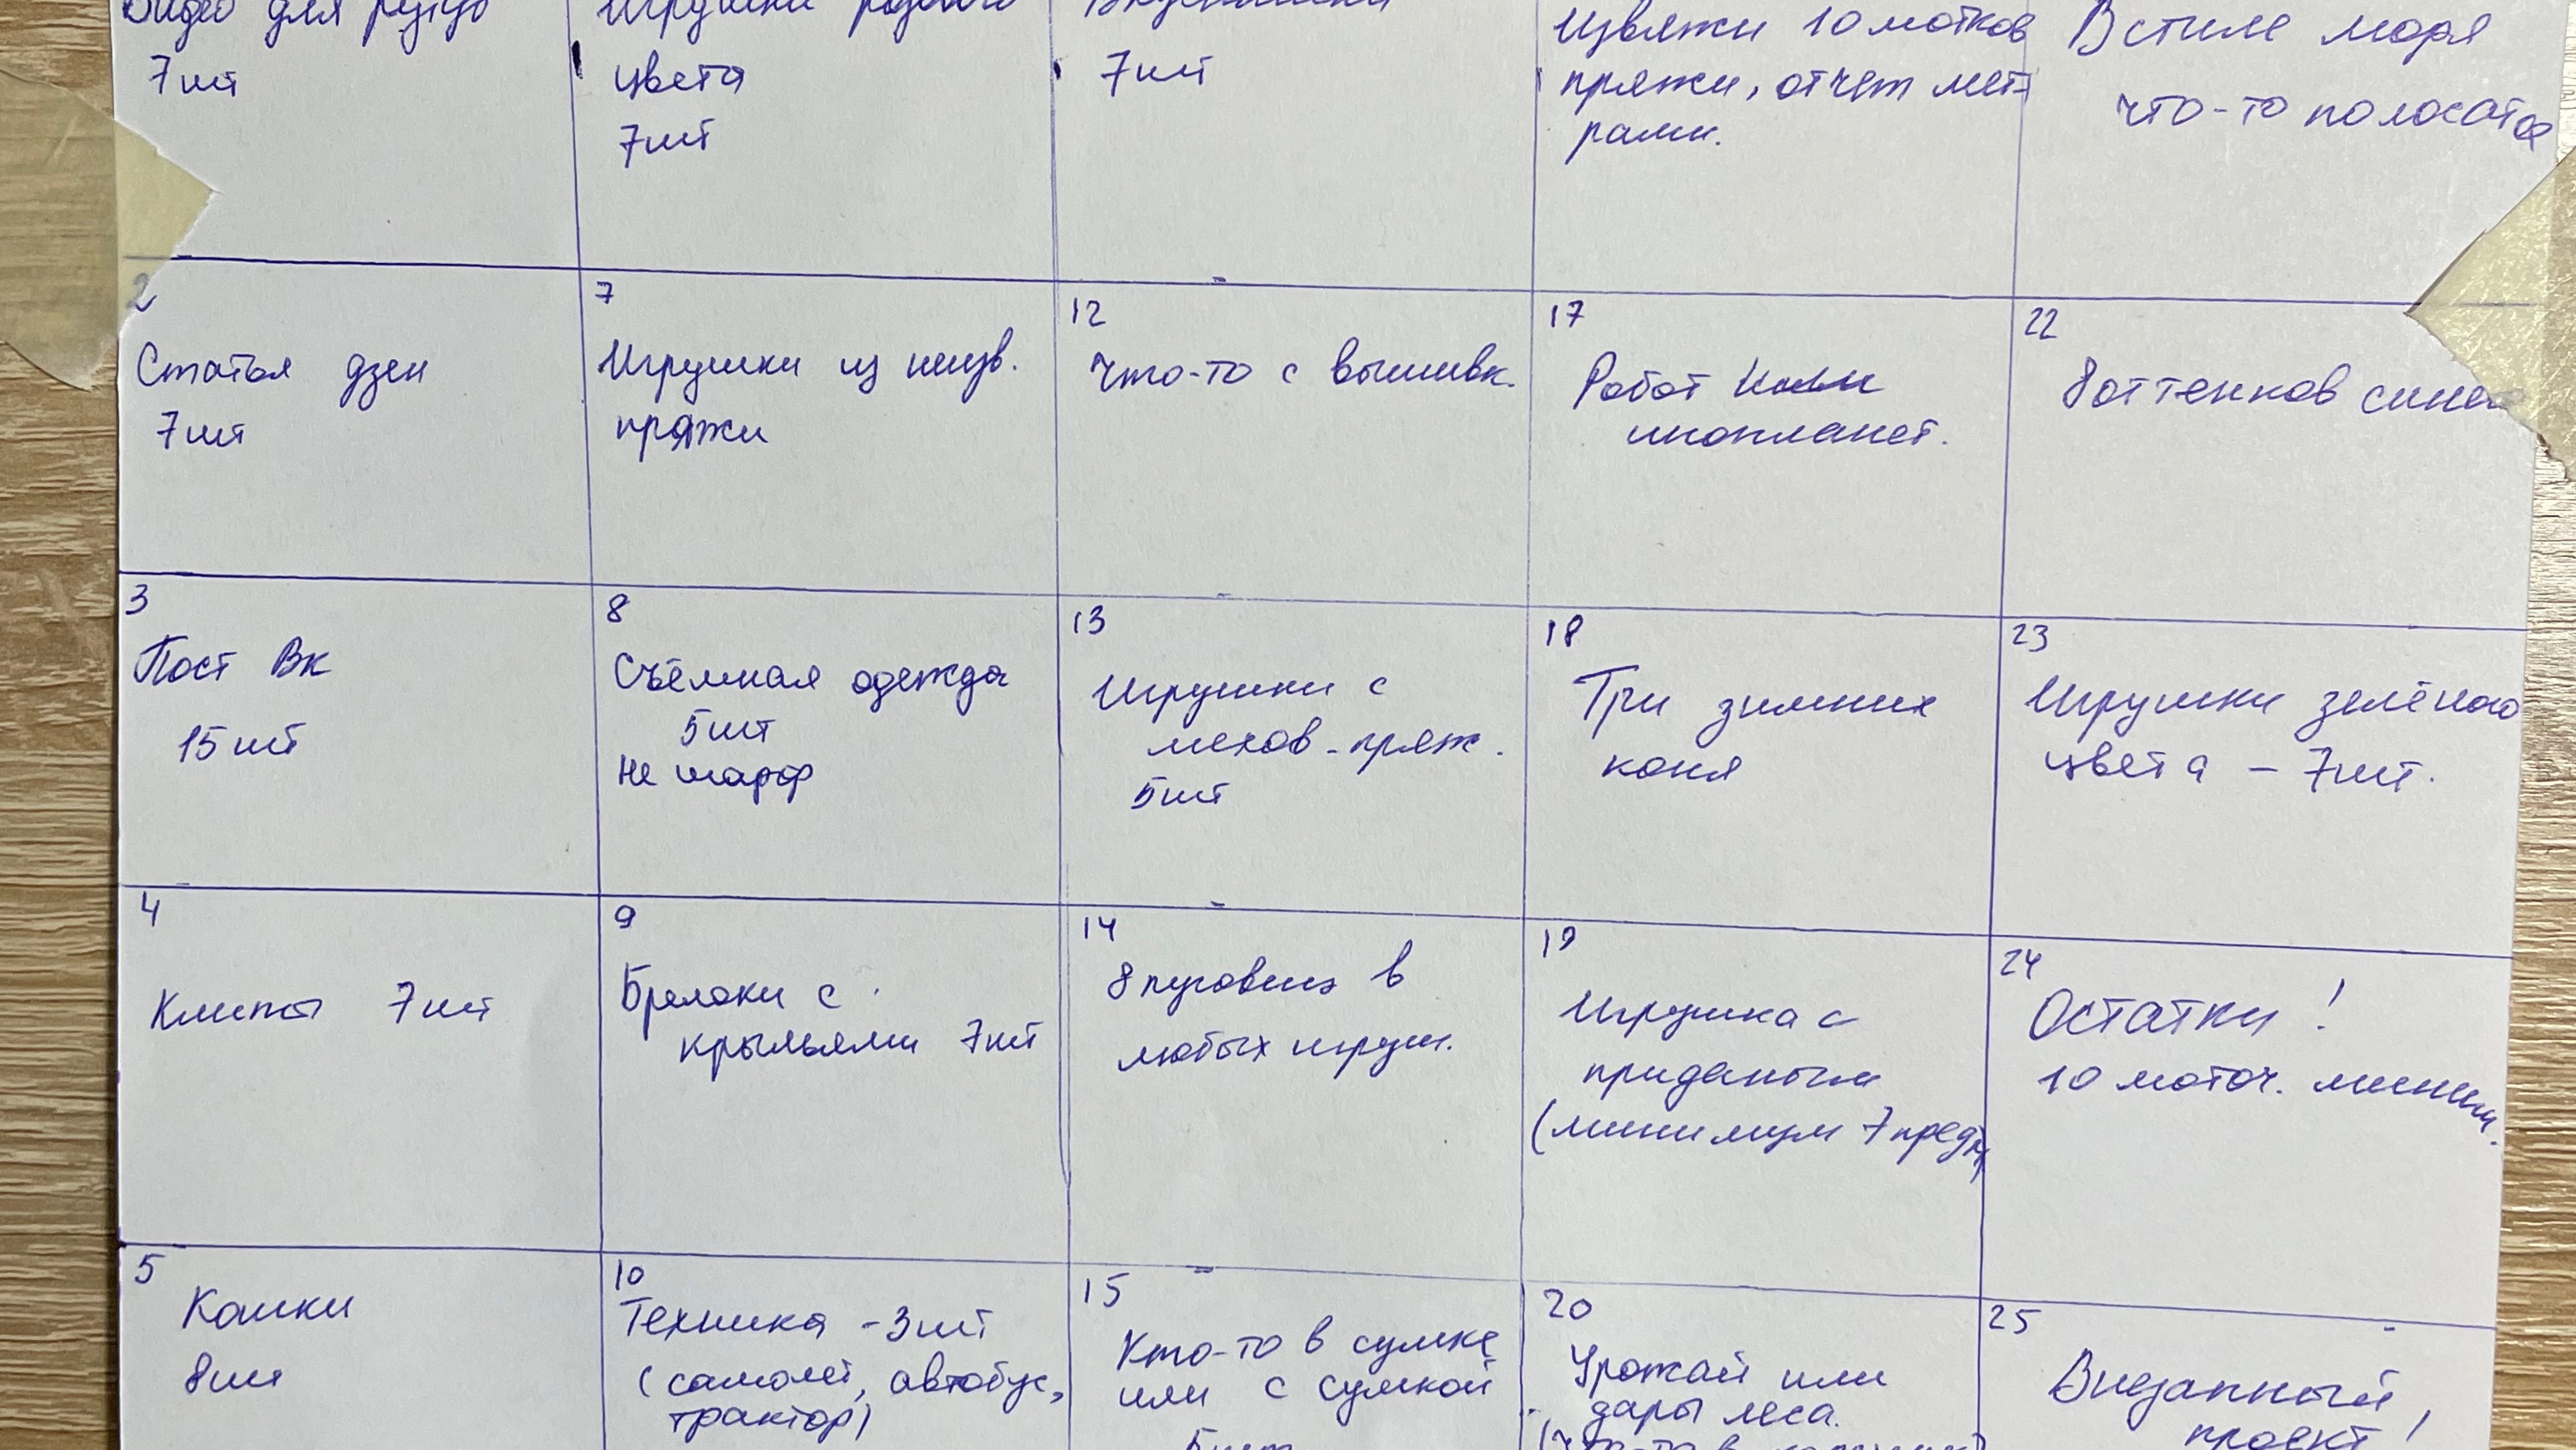 Видео для рутуб
7шт
Игрушки розового
цвета
7шт
7шт
Извяжи 10 мотков
пряжи, отчет мет-
рами.
В стиле моря
что-то полосатое
2
Статья дзен
7шт
7
Игрушки из неизв.
пряжи
12
Что-то с вышивк.
17
Робот или
инопланет.
22
8 оттенков синего
3
Пост Вк
15 шт
8
Съёмная одежда
5шт
Не шарф
13
Игрушки с
мехов. пряж.
5шт
18
Три зимних
коня
23
Игрушки зелёного
цвета - 7шт.
4
Клипы 7шт
9
Брелоки с
крыльями 7шт
14
8 пуговиц в
любых игруш.
19
Игрушка с
приданым
(минимум 7 предм)
24
Остатки!
10 моточ. миним.
5
Кошки
8шт
10
Техника - 3шт
(самолет, автобус,
трактор)
15
Кто-то в сумке
или с сумкой
5шт
20
Урожай или
дары леса.
(что-то в
25
Внезапный
проект!